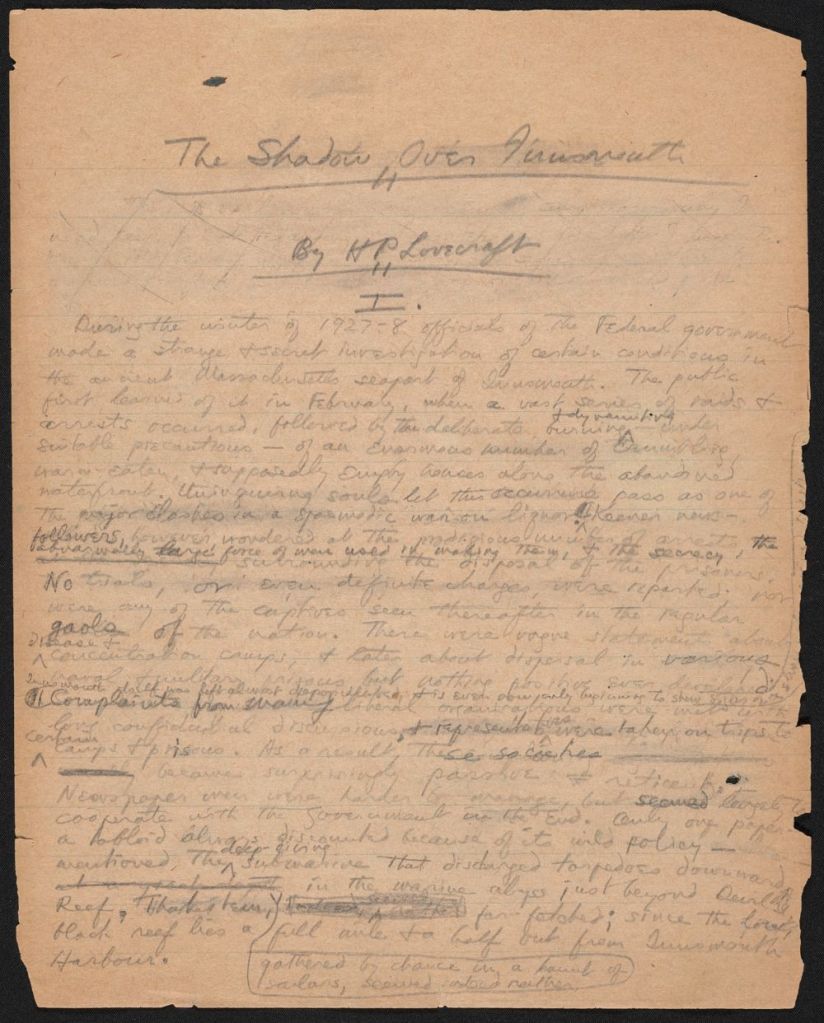 The Shadow Over Innsmouth
By H P Lovecraft
I.
During the winter of 1927–8 officials of the Federal government
made a strange & secret investigation of certain conditions in
the ancient Massachusetts seaport of Innsmouth. The public
first learned of it in February, when a vast series of raids &
arrests occurred, followed by the deliberate burning & dynamiting — under
suitable precautions — of an enormous number of crumbling,
worm-eaten, & supposedly empty houses along the abandoned
waterfront. Uninquiring souls let this occurrence pass as one of
the major clashes in a spasmodic war on liquor. ¶ Keener news-
followers, however, wondered at the prodigious number of arrests, the
abnormally large force of men used in making them, & the secrecy
surrounding the disposal of the prisoners.
No trials, or even definite charges, were reported; nor
were any of the captives seen thereafter in the regular
gaols of the nation. There were vague statements about
disease &
concentration camps, & later about dispersal in various
naval & military prisons, but nothing positive ever developed.
Innsmouth itself was left almost depopulated, & is even only beginning to show
¶ Complaints from many liberal organisations were met with
long confidential discussions, & representatives were taken on trips to
certain
camps & prisons. As a result, these societies
became surprisingly passive & reticent.
Newspaper men were harder to manage, but seemed largely to
cooperate with the government in the end. Only one paper—
a tabloid always discounted because of its wild policy —
mentioned the deep-diving submarine that discharged torpedoes downward
in the marine abyss just beyond Devil
Reef. That item, far-fetched; since the low,
black reef lies a full mile & a half out from Innsmouth
Harbour.
gathered by chance in a haunt of
sailors, seemed indeed rather